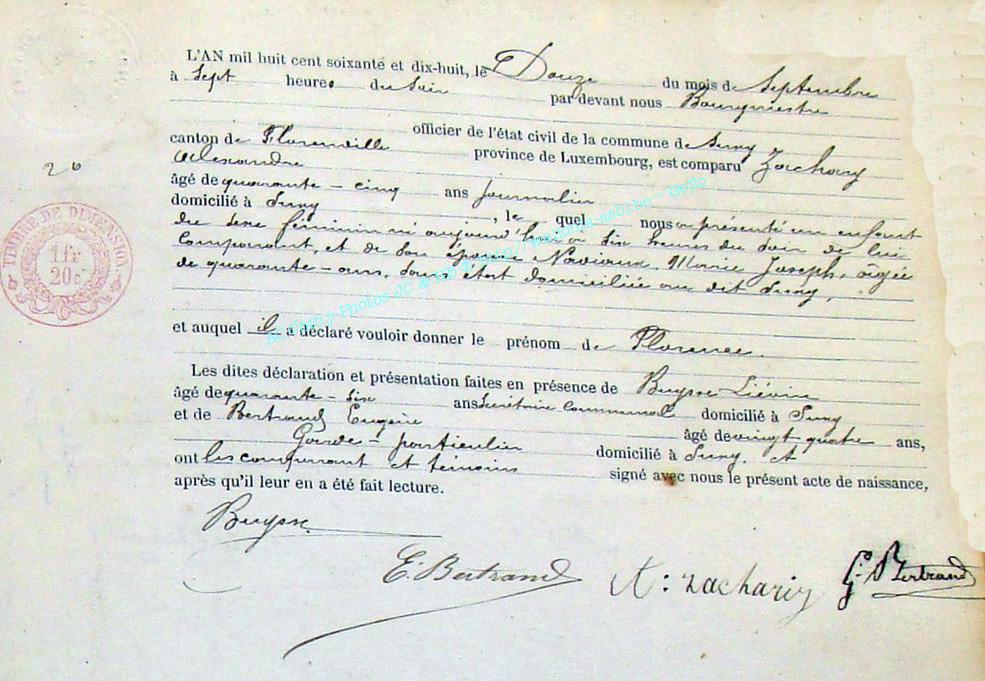 L'AN mil huit cent soixante et dix-huit, le Douze du mois de Septembre
à Sept heures du Soir par devant nous Bourgmestre
officier de l'état civil de la commune de Suxy
canton de Florenville province de Luxembourg, est comparu Zachary
Alexandre
âgé de quarante-cinq ans journalier
domicilié à Suxy, le quel nous a présenté un enfant
du sexe féminin né aujourd'hui a six heures du soir de lui
comparant, et de son épouse Naviaux, Marie Joseph, agée
de quarante-ans, sans état domiciliée au dit Suxy,
et auquel il a déclaré vouloir donner le prénom de Florence.
Les dites déclaration et présentation faites en présence de Buysse Liévin
âgé de quarante-six ans Secrétaire Communal domicilié à Suxy
et de Bertrand Eugène âgé de vingt quatre ans,
Garde-particulier domicilié à Suxy. et
ont les comparant et témoins signé avec nous le présent acte de naissance,
après qu'il leur en a été fait lecture.
Buysse
E. Bertrand A: zachariy G. Bertrand
20
TIMBRE DE DIMENSION
1 fr
20 c
Photos JC &